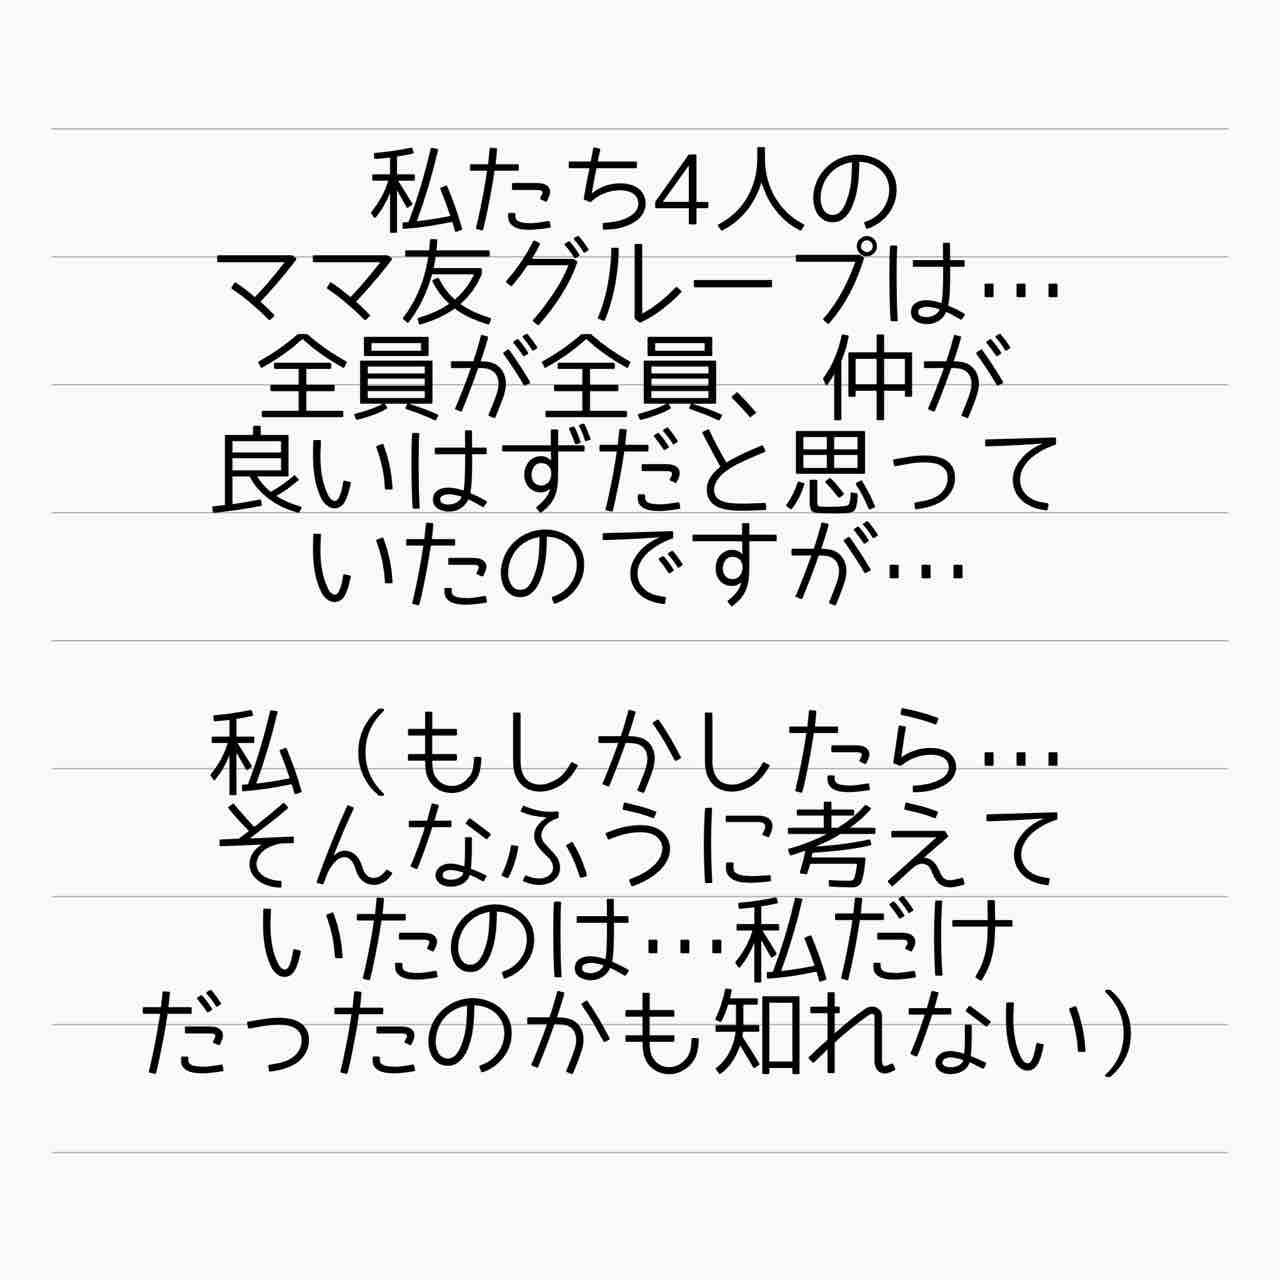 私たち4人の
ママ友グループは…
全員が全員、仲が
良いはずだと思って
いたのですが…
私（もしかしたら…
そんなふうに考えて
いたのは…私だけ
だったのかも知れない）